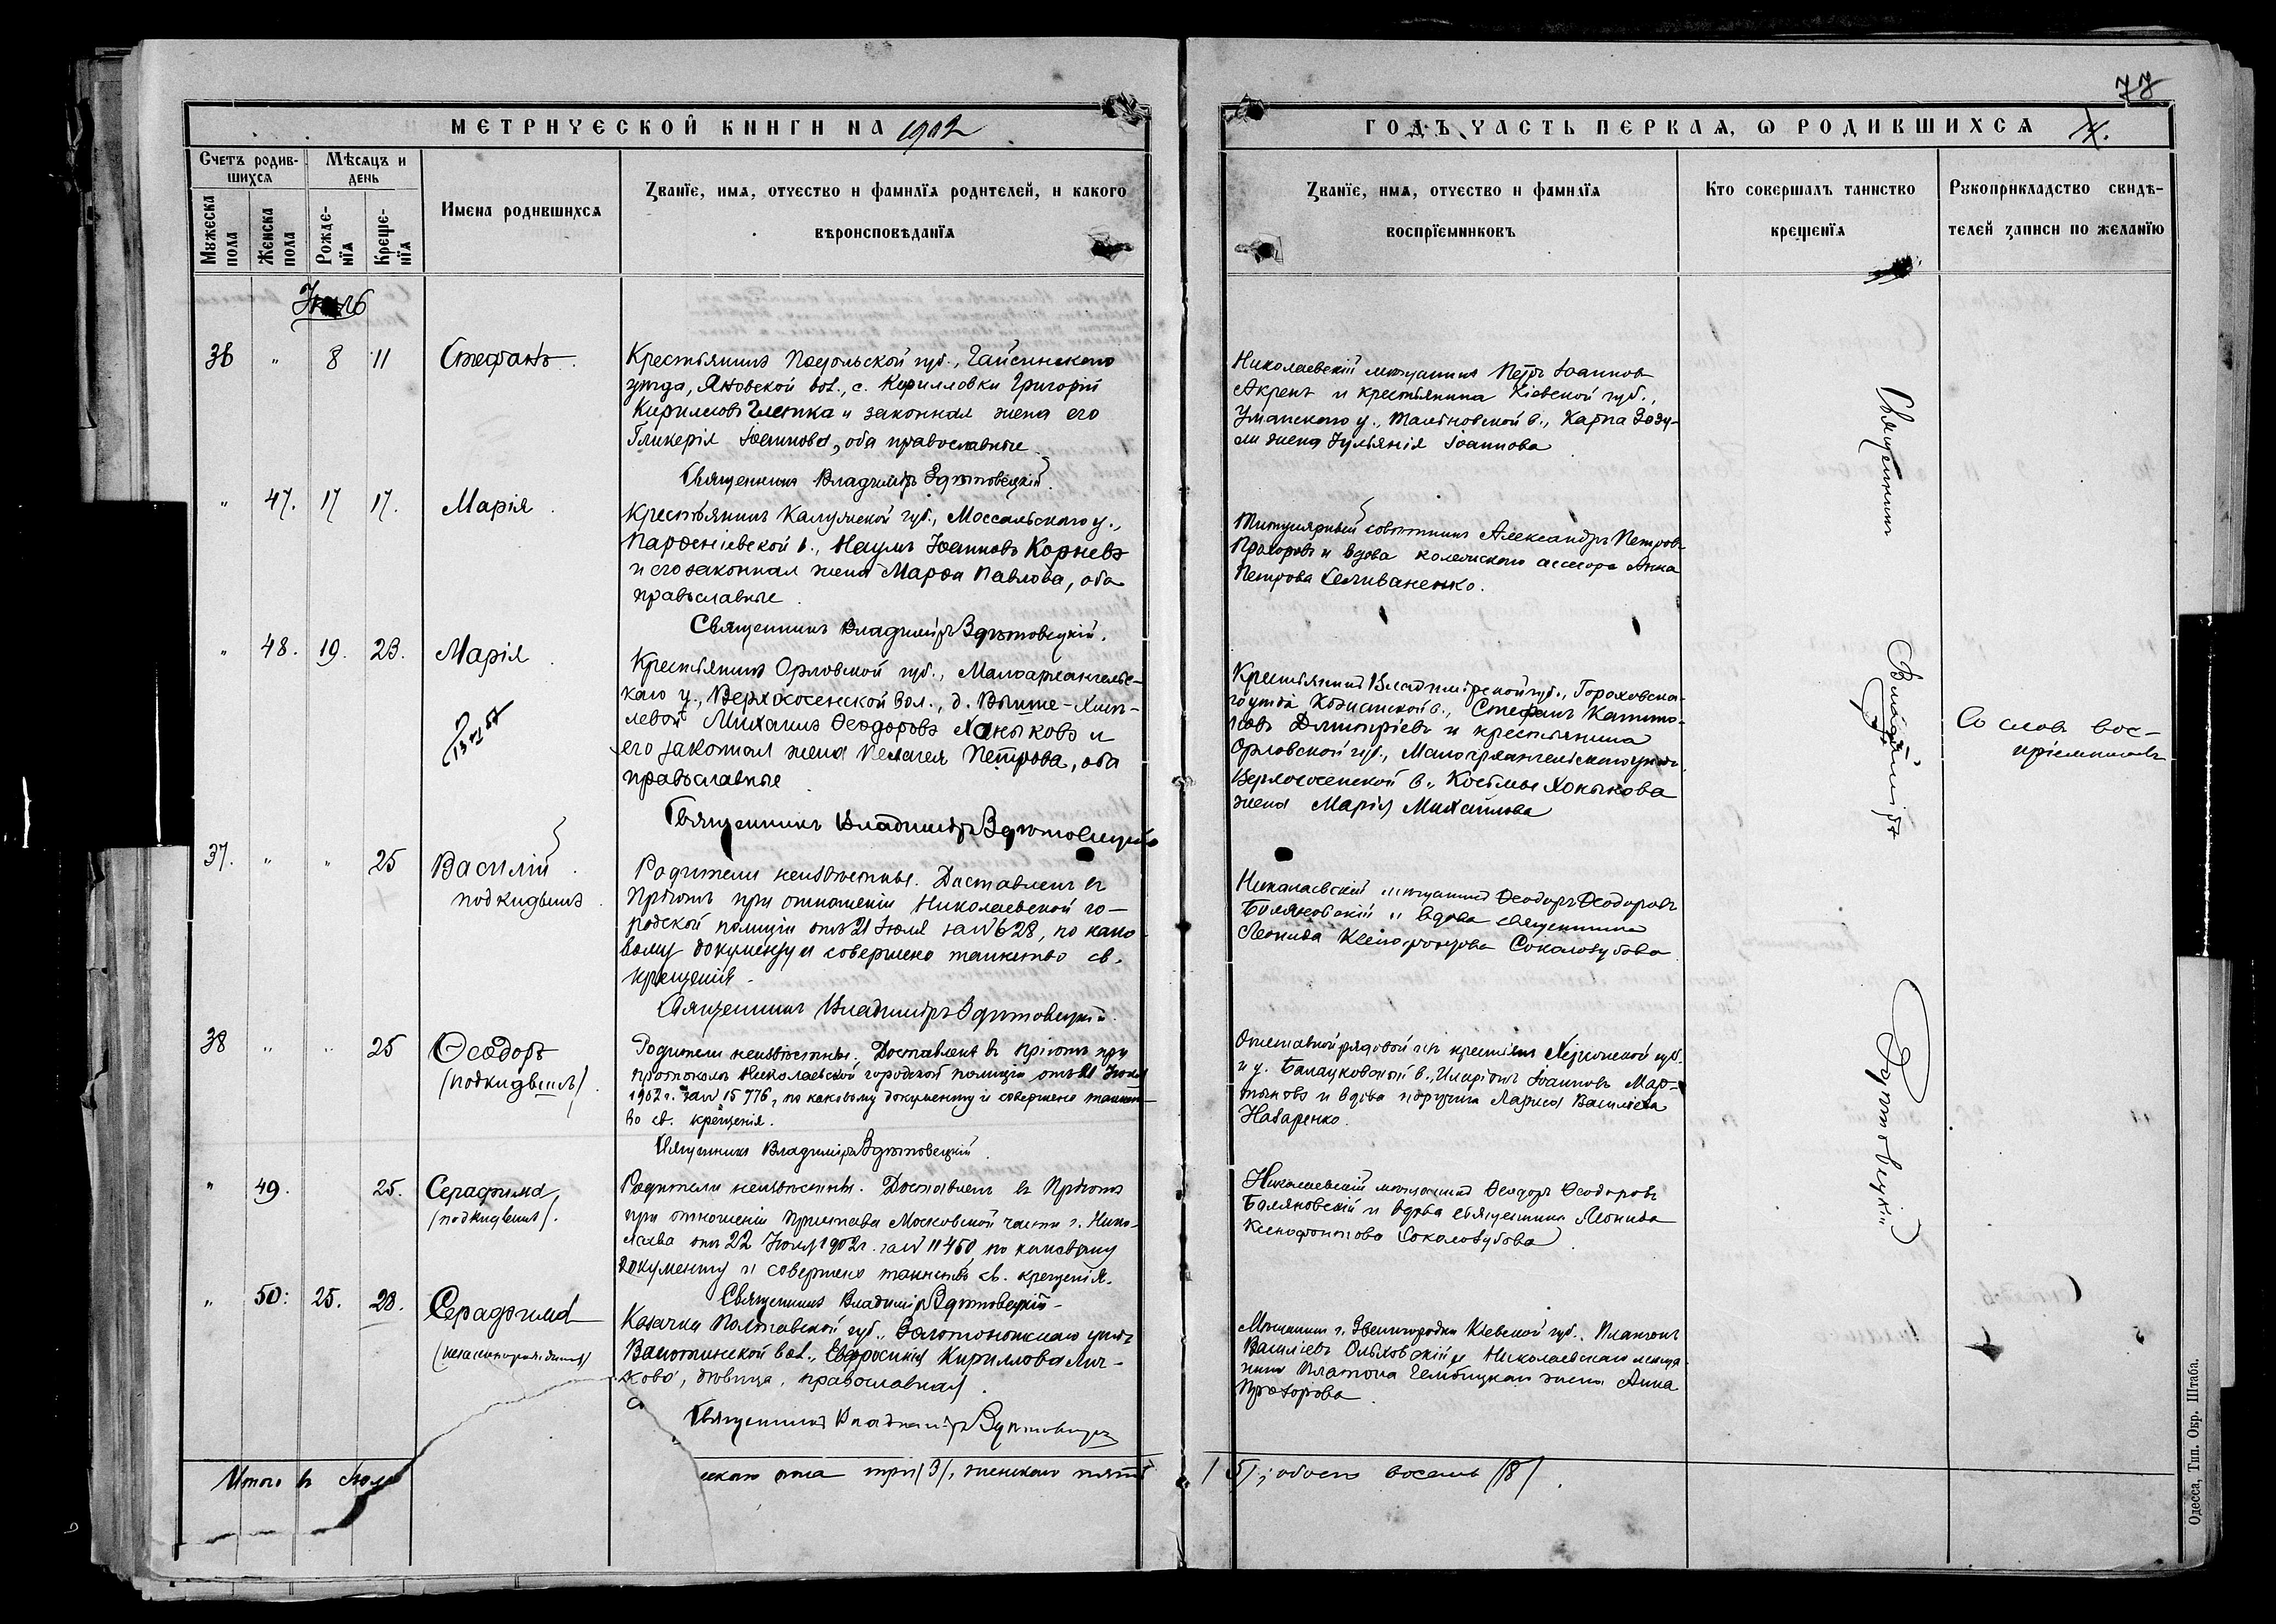 78
МЕТРИЧЕСКОЙ КНИГИ НА 1902
ГОДЪ ЧАСТЬ ПЕРВАЯ, Ѡ РОДИВШИХСЯ
Счетъ родив-
шихся
Мѣсяцъ и
день
Мужеска
пола
Женска
пола
Рожде-
нїя
Креще-
нїя
Имена родившихся
Званїе, имя, отчество и фамилїя родителей, и какого
вѣроисповѣданїя
Званїе, имя, отчество и фамилїя
воспрїемниковъ
Кто совершалъ таинство
крещенїя
Рукоприкладство свидѣ-
телей записи по желанїю
Июль
36 " 8 11 Стефанъ.
Крестьянинъ Подольской губ., Гайсинскаго
уѣзда, Яновской вол., с. Кирилловки Григорій
Кирилловъ и законная жена его
Гликерія Іоаннова, оба православные.
Священникъ Владиміръ Здѣтовецкій.
Николаевскій мѣщанинъ Петръ Іоанновъ
и крестьянина Кіевской губ.,
Уманскаго у., Тальновской в., Карпа
жена Іульянія Іоаннова
" 47. 17 17. Марія.
Крестьянинъ Калужской губ., Мосальскаго у.,
Парѳеніевской в., Наумъ Іоанновъ Корневъ
и его законная жена Марѳа Павлова, оба
православные.
Священникъ Владиміръ Здѣтовецкій.
Титулярный совѣтникъ Александръ Петровъ
Прохоровъ и вдова колежскаго ассесора Анна
Петрова Селиваненко.
" 48. 19. 23. Марія.
Крестьянинъ Орловской губ., Малоархангельс-
каго у., Верхососенской вол., д. Выше-
Михаилъ Ѳеодоровъ Хоныковъ и
его законная жена Пелагея Петрова, оба
православные
Священникъ Владиміръ Здѣтовецкій
Крестьянинъ Владимірской губ., Гороховска-
го уѣзда в., Стефанъ
Димитріевъ и крестьянина
Орловской губ., Малоархангельскаго уѣзда
Верхососенской в., Козьмы Хоныкова
жена Марія Михайлова
Со словъ вос-
пріемниковъ
37. " " 25 Василій.
подкидышъ.
Родители неизвѣстны. Доставленъ въ
Пріютъ при отношеніи Николаевской го-
родской полиціи отъ 21 Іюля за № 628, по како-
вому документу и совершено таинство св.
крещенія.
Священникъ Владиміръ Здѣтовецкій.
Николаевскій мѣщанинъ Ѳеодоръ Ѳеодоровъ
Боляновскій и вдова священника
Леонида Ксенофонтова Соколозубова
38 " " 25 Ѳеодоръ
(подкидышъ).
Родители неизвѣстны. Доставленъ въ Пріютъ при
протоколѣ Николаевской городской полиціи отъ 21 Іюля
1902 г. за № 15776, по каковому документу и совершено таинст-
во св. крещенія.
Священникъ Владиміръ Здѣтовецкій.
Отставной рядовой изъ крестьянъ Херсонской губ.
и у. Балацковской в., Иларіонъ Іоанновъ Мар-
тыновъ и вдова Лариса Васильева
Назаренко.
" 49. 25. Серафима
(подкидышъ).
Родители неизвѣстны. Доставлена въ Пріютъ
при отношеніи Пристава Московской части г. Нико-
лаева отъ 22 Іюля 1902 г. за № 11450 по каковому
документу и совершено таинство св. крещенія.
Священникъ Владиміръ Здѣтовецкій
Николаевскій мѣщанинъ Ѳеодоръ Ѳеодоровъ
Боляновскій и вдова священника Леонида
Ксенофонтова Соколозубова.
" 50. 25. 28. Серафима
(незаконнорожденная)
Казачка Полтавской губ., Золотоношскаго уѣзда
вол., Евфросинія Кириллова Лич-
кова, дѣвица, православная.
Священникъ Владиміръ Здѣтовецкій
Мѣщанинъ г. Звенигородки Кіевской губ.. Платонъ
Василіевъ Ольховскій и Николаевскаго мѣща-
нина Платона жена Анна
Священникъ Владиміръ Здѣтовецкій
Итого въ Іюлѣ
ескаго пола три (3), женскаго пять
(5); обоего восемь (8).
Одесса, Тип. Окр. Штаба.